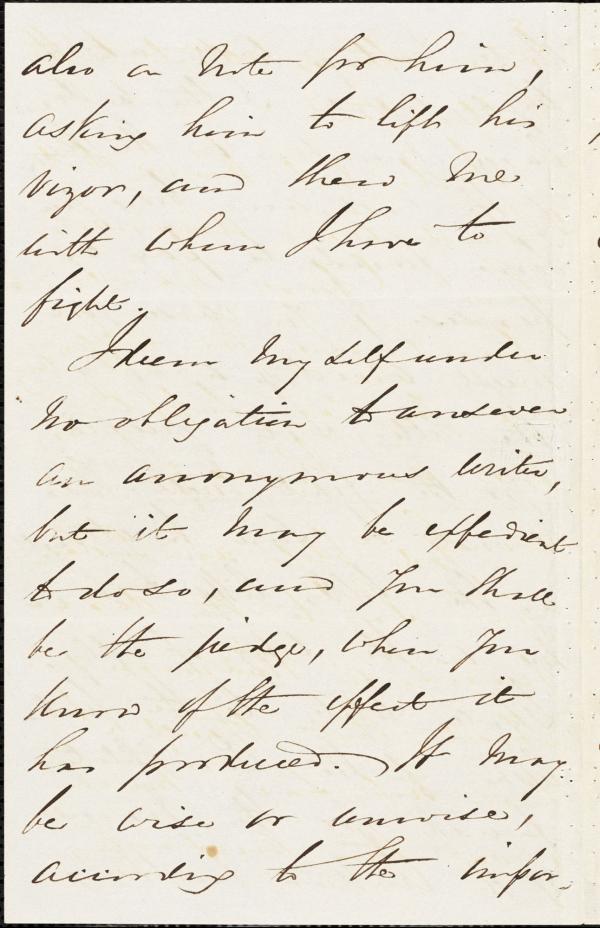 also a note for him,
asking him to lift his
vizor, and show me
with whom I have to
fight.
I deem myself under
no obligation to answer
an anonymous writer,
but it may be expedient
to do so, and you shall
be the judge, when you
know of the effect it
has produced. It may
be wise or unwise,
according to the impor-